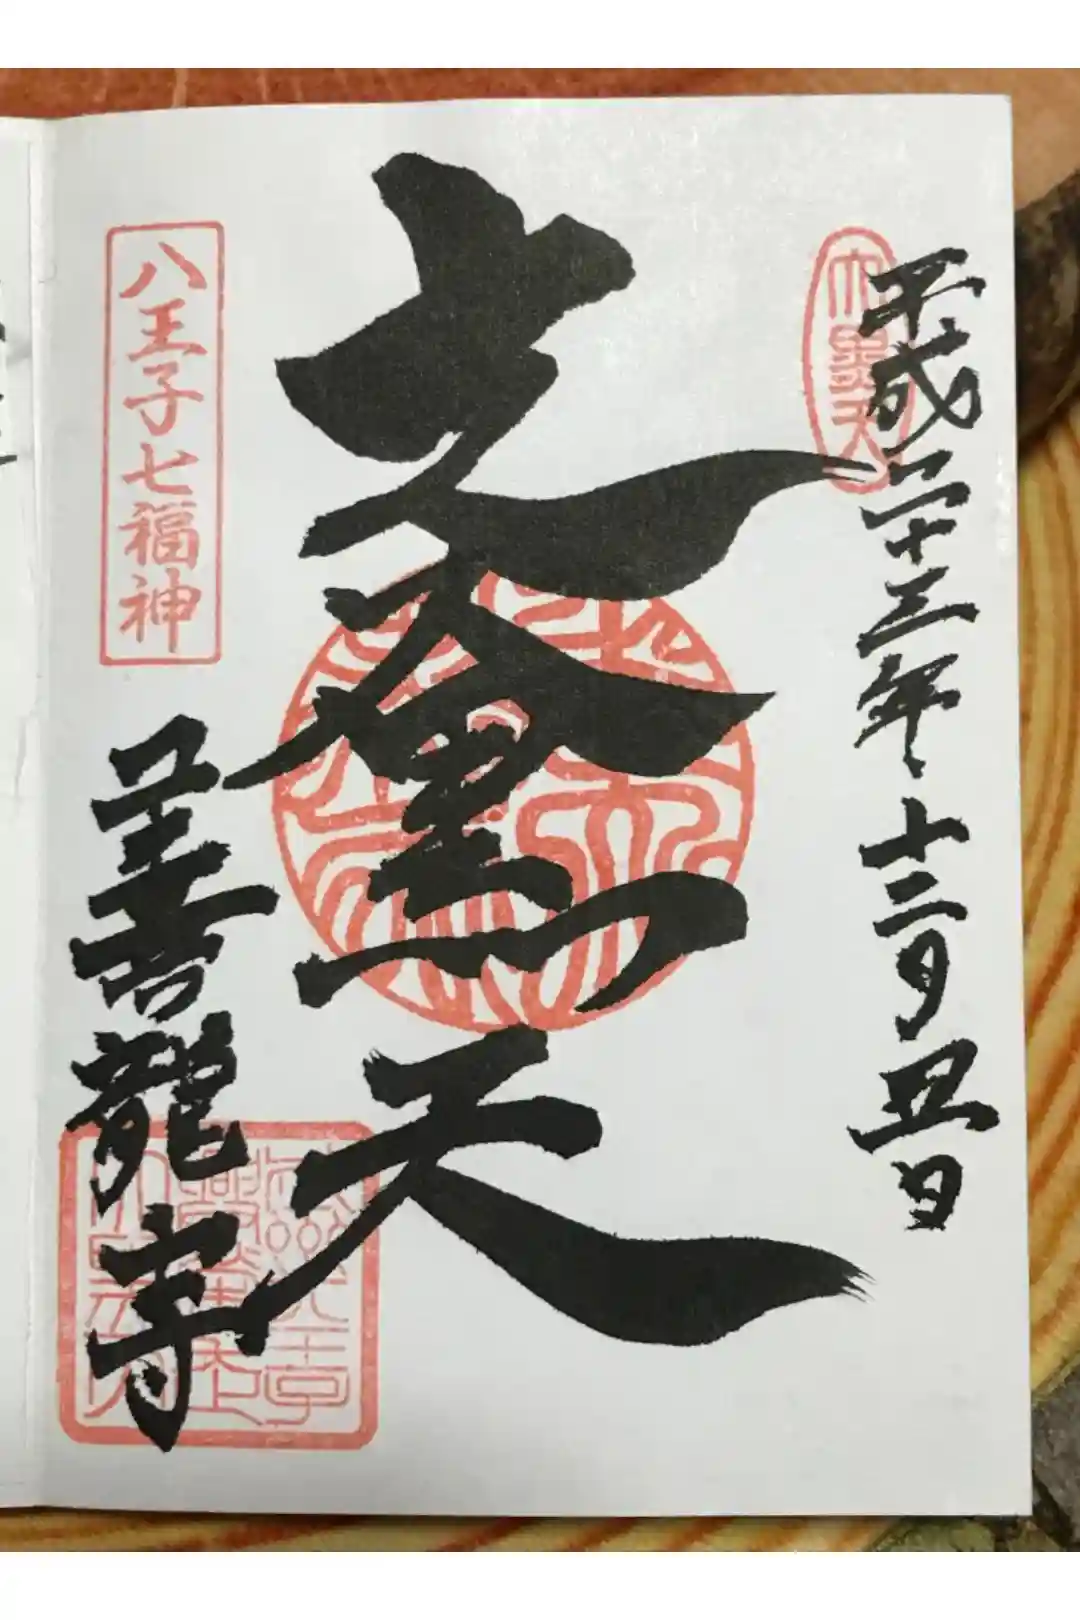 平成二十三年、十二月五日
大黒天
走大黒天
八王子七福神
善龍寺